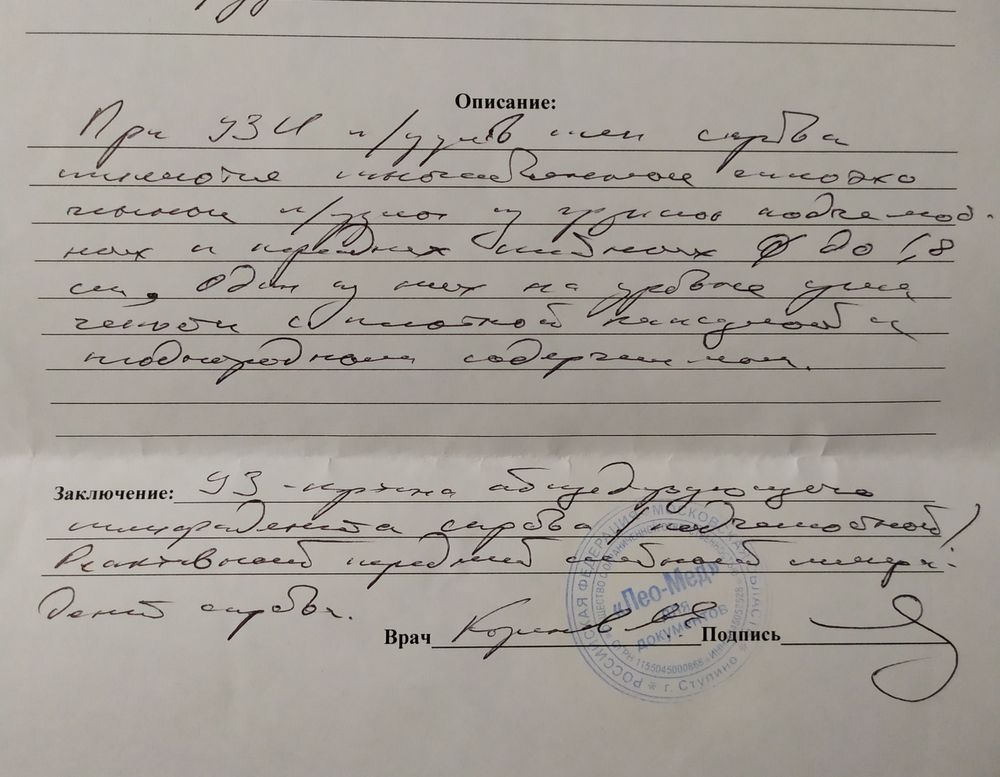 Описание:
При УЗИ л/узлов шеи справа
имеются множественные гипоэхо
генные л/узлы из группы подчелюст-
ных и передних шейных ø до 1,8
см, один из них на уровне
с плотной капсулой и
неоднородным содержимым.
Заключение: УЗ-картина абсцедирующего
лимфаденита справа /подчелюстной/
Реактивный передний шейный лимфа-
денит справа.
Врач Подпись
РОССИЙСКАЯ ФЕДЕРАЦИЯ МОСКОВСКАЯ ОБЛАСТЬ
«Лео-Мед»
для
документов
ОГРН 1155045000868
г. Ступино